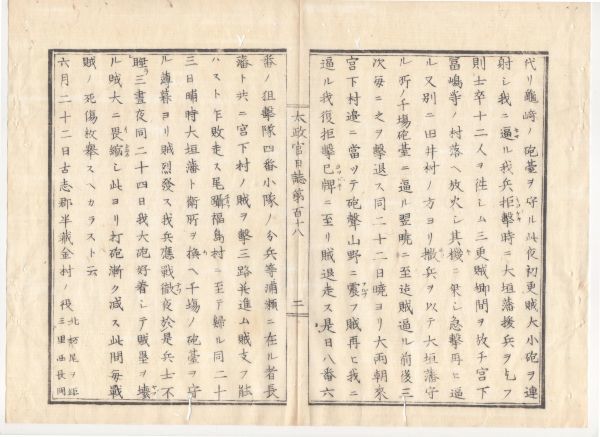 代リ亀崎ノ砲臺ヲ守ル此夜初更賊大小砲ヲ連
射シ我ニ逼ル我兵拒撃時ニ大垣藩援兵ヲ乞フ
則士卒十二人ヲ往シム三更賊間ヲ放チ宮下
冨嶋等ノ村落ヘ放火シ其機ニ乗シ急撃再ヒ逼
ル又別ニ田井村ノ方ヨリ撒兵ヲ以テ大垣藩守
ル所ノ千場砲臺ニ逼ル翌暁ニ至迠賊逼ル前後三
次毎ニ之ヲ撃退ス同二十二日暁ヨリ大雨朝来
宮下村邉ニ當ツテ砲聲山野ニ震フ賊再ヒ我ニ
逼ル我復拒撃已ニ至リ賊退走ス是日八番六
太政官日誌第百十八
二
番ノ狙撃隊四番小隊ノ分兵等浦瀬ニ在ル者長
藩ト共ニ宮下村ノ賊ヲ撃三路並進ム賊支フ能
ハスト乍敗走ス尾撃福島村ニ至テ歸ル同二十
三日晡時大垣藩ト衛所ヲ換ヘ千場ノ砲臺ヲ守
ル薄暮ヨリ賊烈發ス我兵應戰徹夜於是兵士不
睡三晝夜同二十四日我大砲好着シテ賊壘ヲ壊
ル賊大ニ畏縮シ此ヨリ打砲漸ク減ス此間毎戰
賊ノ死傷枚舉スヘカラスト云
六月二十二日古志郡半蔵金村ノ役
北栃尾ヲ距
三里西長岡